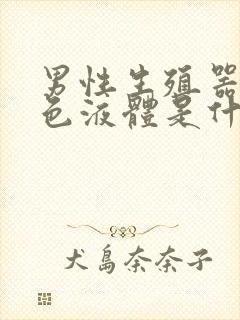 男性生殖器
色液體是什
犬島奈奈子